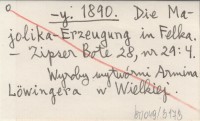 -y: 1890. Die Ma-
jolika-Erzeugung in Felka.
- Zipser Bote 28, nr 29: 4.
Wyroby wytwórni Armina
Löwingera w Wielkiej.